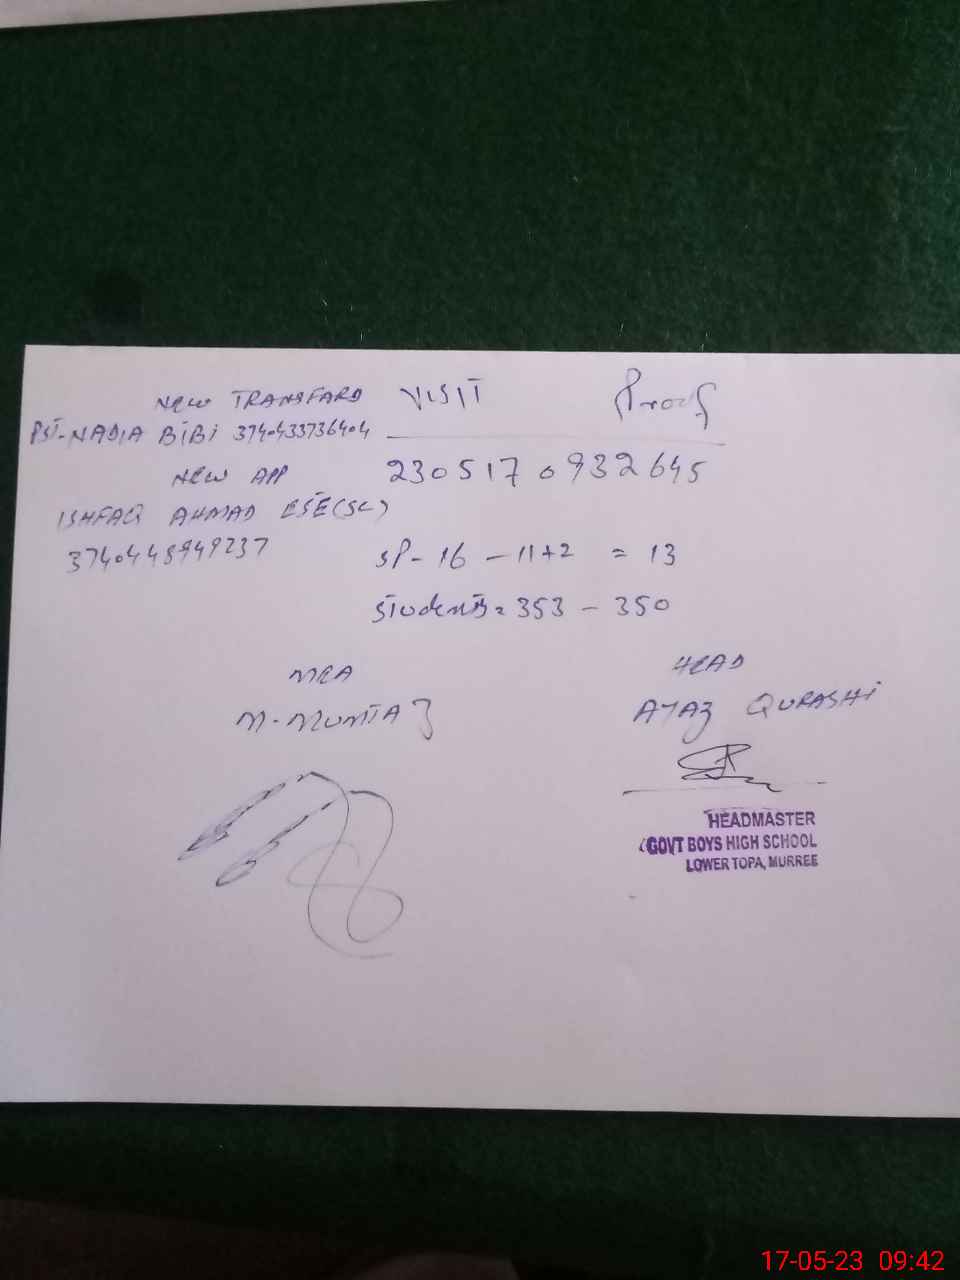 NEW TRANSFARD
PST-NADIA BIBI 3740433736404
NEW APP
ISHFAQ AHMAD ESE(SC)
3740448949237
VISIT Proof
230517 0932645
SP-16 - 11+2 = 13
Students = 353 - 350
MEA
M-MUMTAZ
HEAD
AYAZ QURASHI
HEADMASTER
GOVT BOYS HIGH SCHOOL
LOWER TOPA, MURREE
17-05-23 09:42